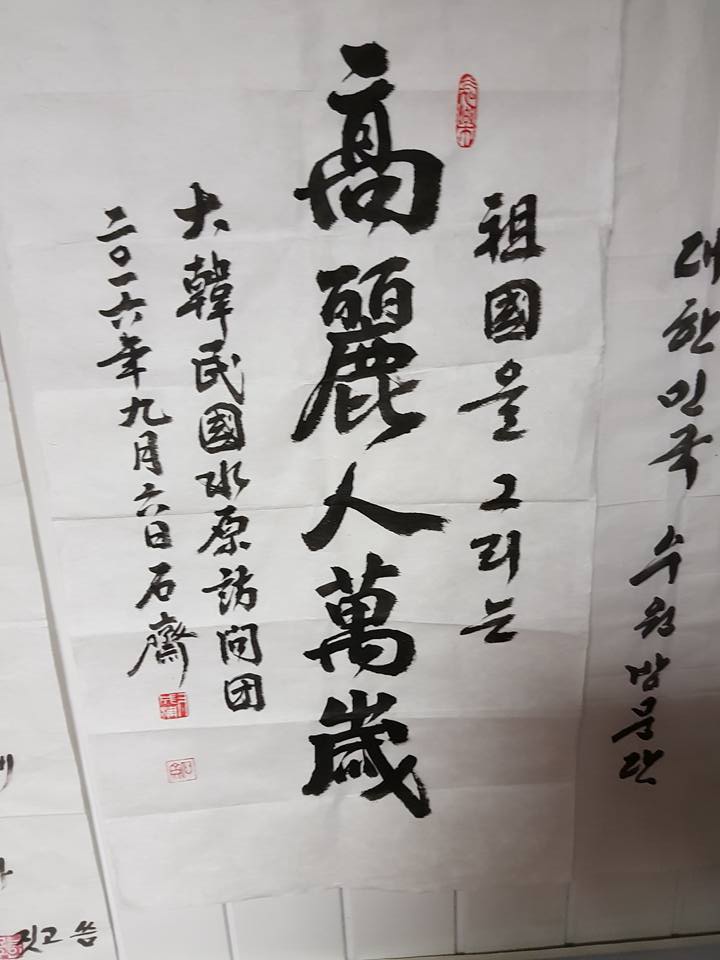 대한민국 수원방문단
祖國을 그리는
高麗人萬歲
大韓民國水原訪问团
二〇一六年九月六日石齋
짓고 씀